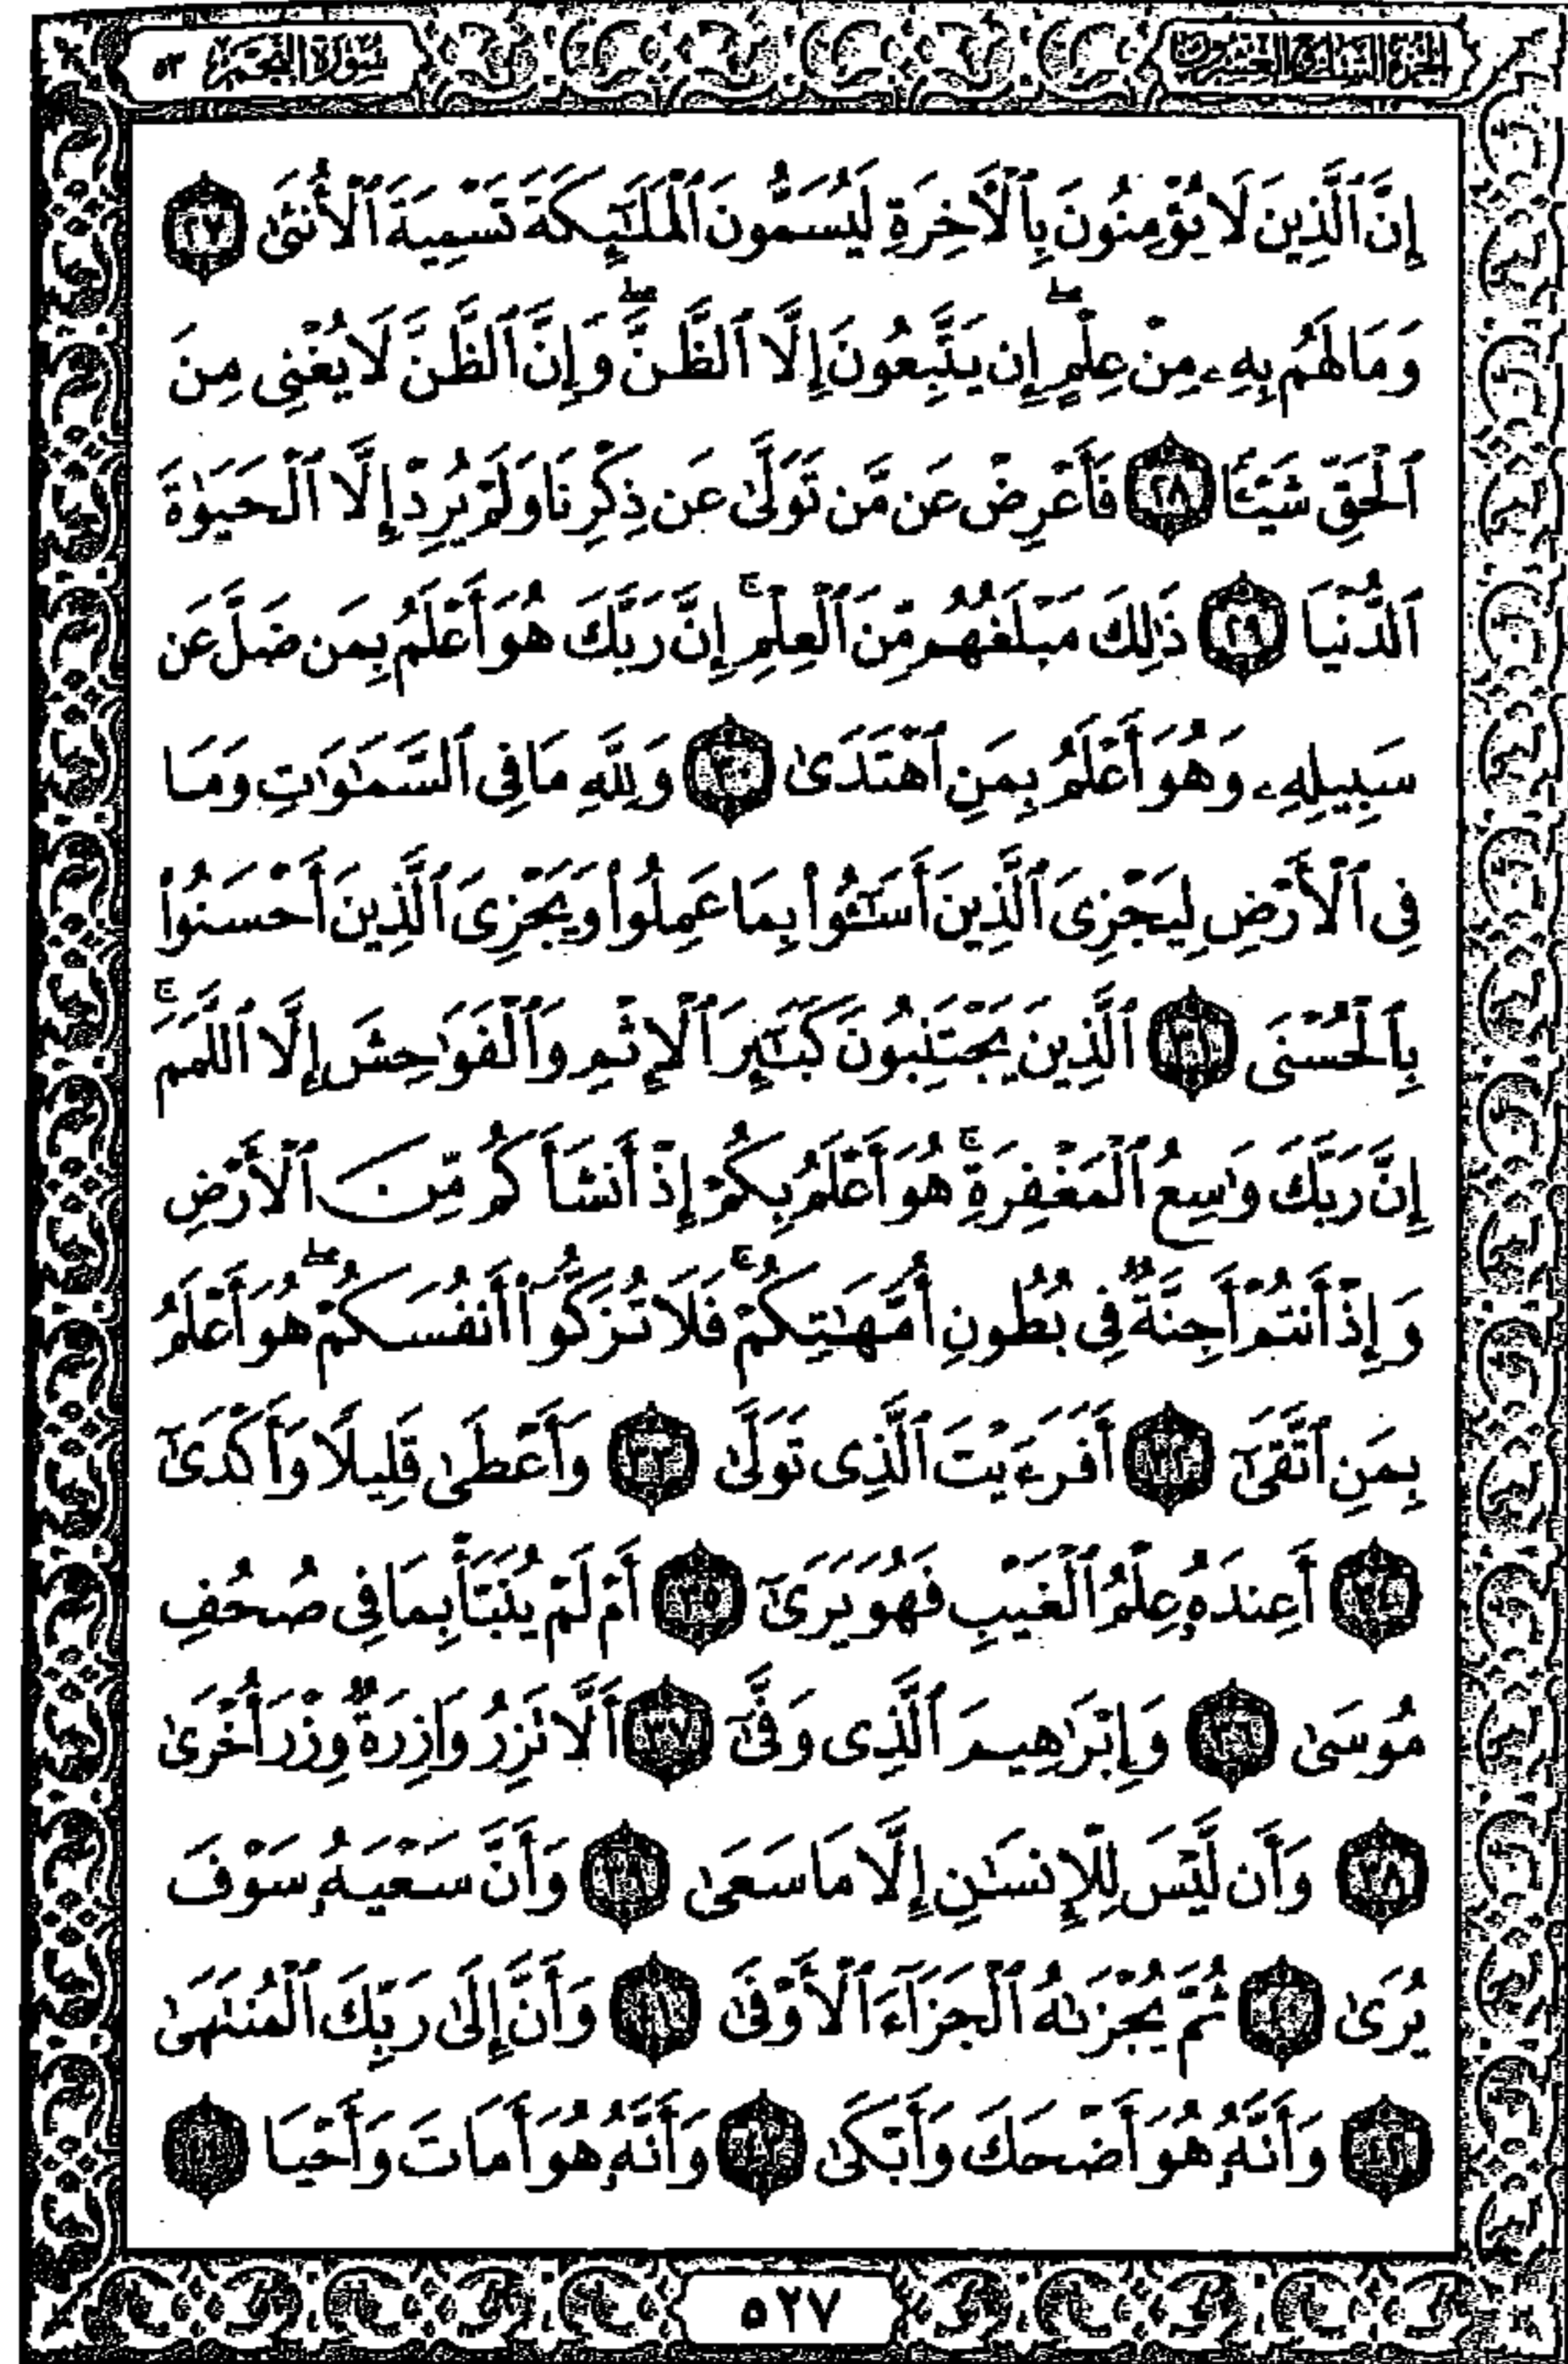 الجزء السابع والعشرون
سورة النجم ٥٣
إِنَّ ٱلَّذِينَ لَا يُؤْمِنُونَ بِٱلْأَخِرَةِ لَيُسَمُّونَ ٱلْمَلَٰٓئِكَةَ تَسْمِيَةَ ٱلْأُنثَىٰ ٢٧
وَمَا لَهُم بِهِۦ مِنْ عِلْمٍ ۖ إِن يَتَّبِعُونَ إِلَّا ٱلظَّنَّ ۖ وَإِنَّ ٱلظَّنَّ لَا يُغْنِى مِنَ
ٱلْحَقِّ شَيْـًٔا ٢٨ فَأَعْرِضْ عَن مَّن تَوَلَّىٰ عَن ذِكْرِنَا وَلَمْ يُرِدْ إِلَّا ٱلْحَيَوٰةَ
ٱلدُّنْيَا ٢٩ ذَٰلِكَ مَبْلَغُهُم مِّنَ ٱلْعِلْمِ ۚ إِنَّ رَبَّكَ هُوَ أَعْلَمُ بِمَن ضَلَّ عَن
سَبِيلِهِۦ وَهُوَ أَعْلَمُ بِمَنِ ٱهْتَدَىٰ ٣٠ وَلِلَّهِ مَا فِى ٱلسَّمَٰوَٰتِ وَمَا
فِى ٱلْأَرْضِ لِيَجْزِىَ ٱلَّذِينَ أَسَٰٓـُٔوا۟ بِمَا عَمِلُوا۟ وَيَجْزِىَ ٱلَّذِينَ أَحْسَنُوا۟
بِٱلْحُسْنَى ٣١ ٱلَّذِينَ يَجْتَنِبُونَ كَبَٰٓئِرَ ٱلْإِثْمِ وَٱلْفَوَٰحِشَ إِلَّا ٱللَّمَمَ ۚ
إِنَّ رَبَّكَ وَٰسِعُ ٱلْمَغْفِرَةِ ۚ هُوَ أَعْلَمُ بِكُمْ إِذْ أَنشَأَكُم مِّنَ ٱلْأَرْضِ
وَإِذْ أَنتُمْ أَجِنَّةٌ فِى بُطُونِ أُمَّهَٰتِكُمْ ۚ فَلَا تُزَكُّوٓا۟ أَنفُسَكُمْ ۖ هُوَ أَعْلَمُ
بِمَنِ ٱتَّقَىٰٓ ٣٢ أَفَرَءَيْتَ ٱلَّذِى تَوَلَّىٰ ٣٣ وَأَعْطَىٰ قَلِيلًا وَأَكْدَىٰٓ
٣٤ أَعِندَهُۥ عِلْمُ ٱلْغَيْبِ فَهُوَ يَرَىٰٓ ٣٥ أَمْ لَمْ يُنَبَّأْ بِمَا فِى صُحُفِ
مُوسَىٰ ٣٦ وَإِبْرَٰهِيمَ ٱلَّذِى وَفَّىٰٓ ٣٧ أَلَّا تَزِرُ وَازِرَةٌ وِزْرَ أُخْرَىٰ
٣٨ وَأَن لَّيْسَ لِلْإِنسَٰنِ إِلَّا مَا سَعَىٰ ٣٩ وَأَنَّ سَعْيَهُۥ سَوْفَ
يُرَىٰ ٤٠ ثُمَّ يُجْزَىٰهُ ٱلْجَزَآءَ ٱلْأَوْفَىٰ ٤١ وَأَنَّ إِلَىٰ رَبِّكَ ٱلْمُنتَهَىٰ
٤٢ وَأَنَّهُۥ هُوَ أَضْحَكَ وَأَبْكَىٰ ٤٣ وَأَنَّهُۥ هُوَ أَمَاتَ وَأَحْيَا ٤٤
٥٢٧